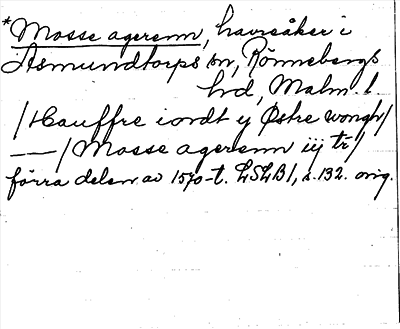 *Mosse agerenn, havreåker i
Asmundtorps sn, Rönnebergs
hd, Malm. l.
/Hauffre iordt y Østre wongh/
——/Mosse agerenn iij tr/
förra delen av 1570-t. LSLB1, s. 132. orig.